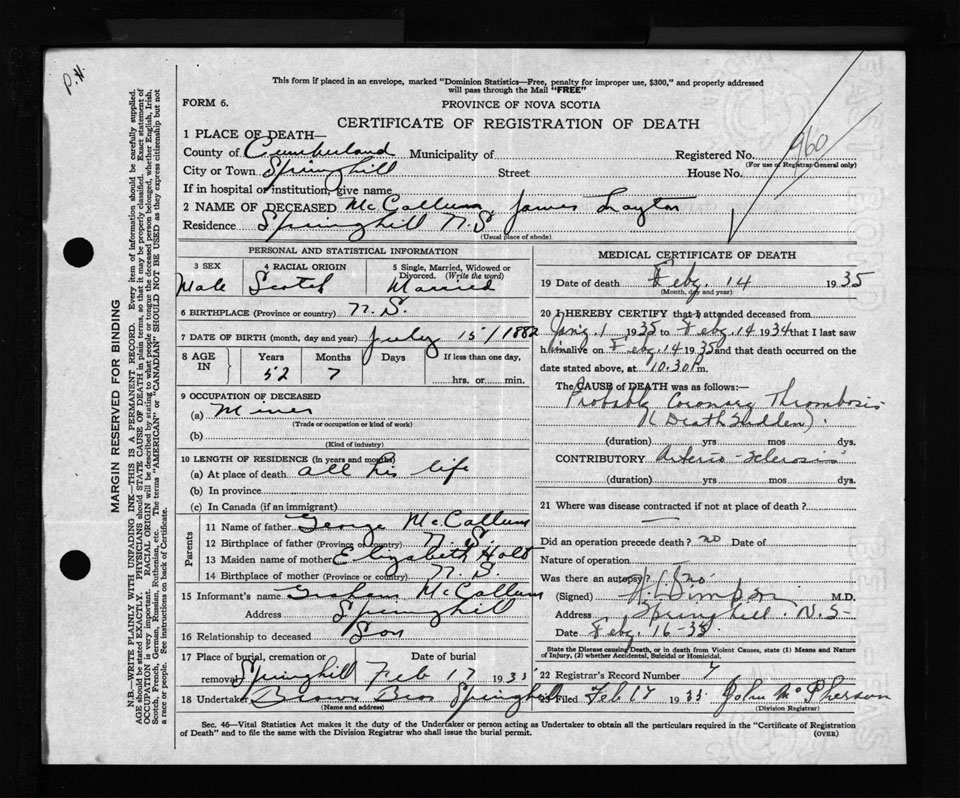 P.H.
This form if placed in an envelope, marked "Dominion Statistics—Free, penalty for improper use, $300," and properly addressed
will pass through the Mail "FREE"
FORM 6.
PROVINCE OF NOVA SCOTIA
CERTIFICATE OF REGISTRATION OF DEATH
1 PLACE OF DEATH—
County of Cumberland Municipality of Registered No. 960
(For use of Registrar General only)
City or Town Springhill Street House No.
If in hospital or institution, give name
2 NAME OF DECEASED McCallum James Layton
Residence Springhill N.S
(Usual place of abode)
PERSONAL AND STATISTICAL INFORMATION
3 SEX 4 RACIAL ORIGIN 5 Single, Married, Widowed or Divorced. (Write the word)
Male Scotch Married
6 BIRTHPLACE (Province or country) N.S.
7 DATE OF BIRTH (month, day and year) July 15/1882
8 AGE IN Years Months Days If less than one day,
52 7 hrs. or min.
9 OCCUPATION OF DECEASED
(a) Miner
(Trade or occupation or kind of work)
(b)
(Kind of industry)
10 LENGTH OF RESIDENCE (in years and months)
(a) At place of death all his life
(b) In province
(c) In Canada (if an immigrant)
Parents
11 Name of father George McCallum
12 Birthplace of father (Province or country) N.S.
13 Maiden name of mother Elizabeth Holt
14 Birthplace of mother (Province or country) N.S.
15 Informant's name Graham McCallum
Address Springhill
16 Relationship to deceased Son
17 Place of burial, cremation or Date of burial
removal Springhill Feb 17 1935
18 Undertaker Brown Bros Springhill
(Name and address)
MEDICAL CERTIFICATE OF DEATH
19 Date of death Feby. 14 1935
(Month, day and year)
20 I HEREBY CERTIFY that I attended deceased from
Jany. 1 1935 to Feby. 14 1934 that I last saw
him alive on Feby. 14 1935 and that death occurred on
date stated above, at 10.30 P.m.
The CAUSE of DEATH was as follows:—
Probably Coronary Thrombosis
(Death Sudden).
(duration) yrs mos dys.
CONTRIBUTORY Arterio-Sclerosis
(duration) yrs mos dys.
21 Where was disease contracted if not at place of death?
Did an operation precede death? no Date of
Nature of operation
Was there an autopsy? no.
(Signed) Simpson M.D.
Address Springhill. N.S-
Date Feby. 16-35
State the Disease causing Death, or in death from Violent Causes, state (1) Means and Nature
of Injury, (2) whether Accidental, Suicidal or Homicidal.
22 Registrar's Record Number 7
23 Filed Feb 17 1935 John McPherson
(Division Registrar)
Sec. 46—Vital Statistics Act makes it the duty of the Undertaker or person acting as Undertaker to obtain all the particulars required in the "Certificate of Registration
of Death" and to file the same with the Division Registrar who shall issue the burial permit.
(OVER)
MARGIN RESERVED FOR BINDING
N.B.—WRITE PLAINLY WITH UNFADING INK—THIS IS A PERMANENT RECORD. Every item of information should be carefully supplied.
AGE should be stated EXACTLY. PHYSICIANS should STATE CAUSE OF DEATH in plain terms, so that it may be properly classified. Exact statement of
OCCUPATION is very important. RACIAL ORIGIN will be described by stating to what people or tongue the deceased person belonged, whether English, Irish,
Scotch, French, German, Russian, Ruthenian, etc. The terms "AMERICAN" or "CANADIAN" SHOULD NOT BE USED as they express citizenship but not
a race or people. See instructions on back of Certificate.